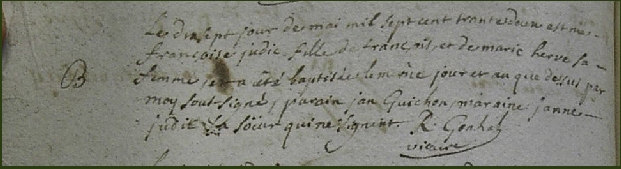 Le dixsept jour de mai mil sept cent trente deux est née
françoise judic fille de françois et de marie herve sa
B femme, et a été baptisée le même jour et an que dessus par
moy soussigné, parain jan Guichon, maraine janne
judic sa sœur qui ne signent. R.
vicaire